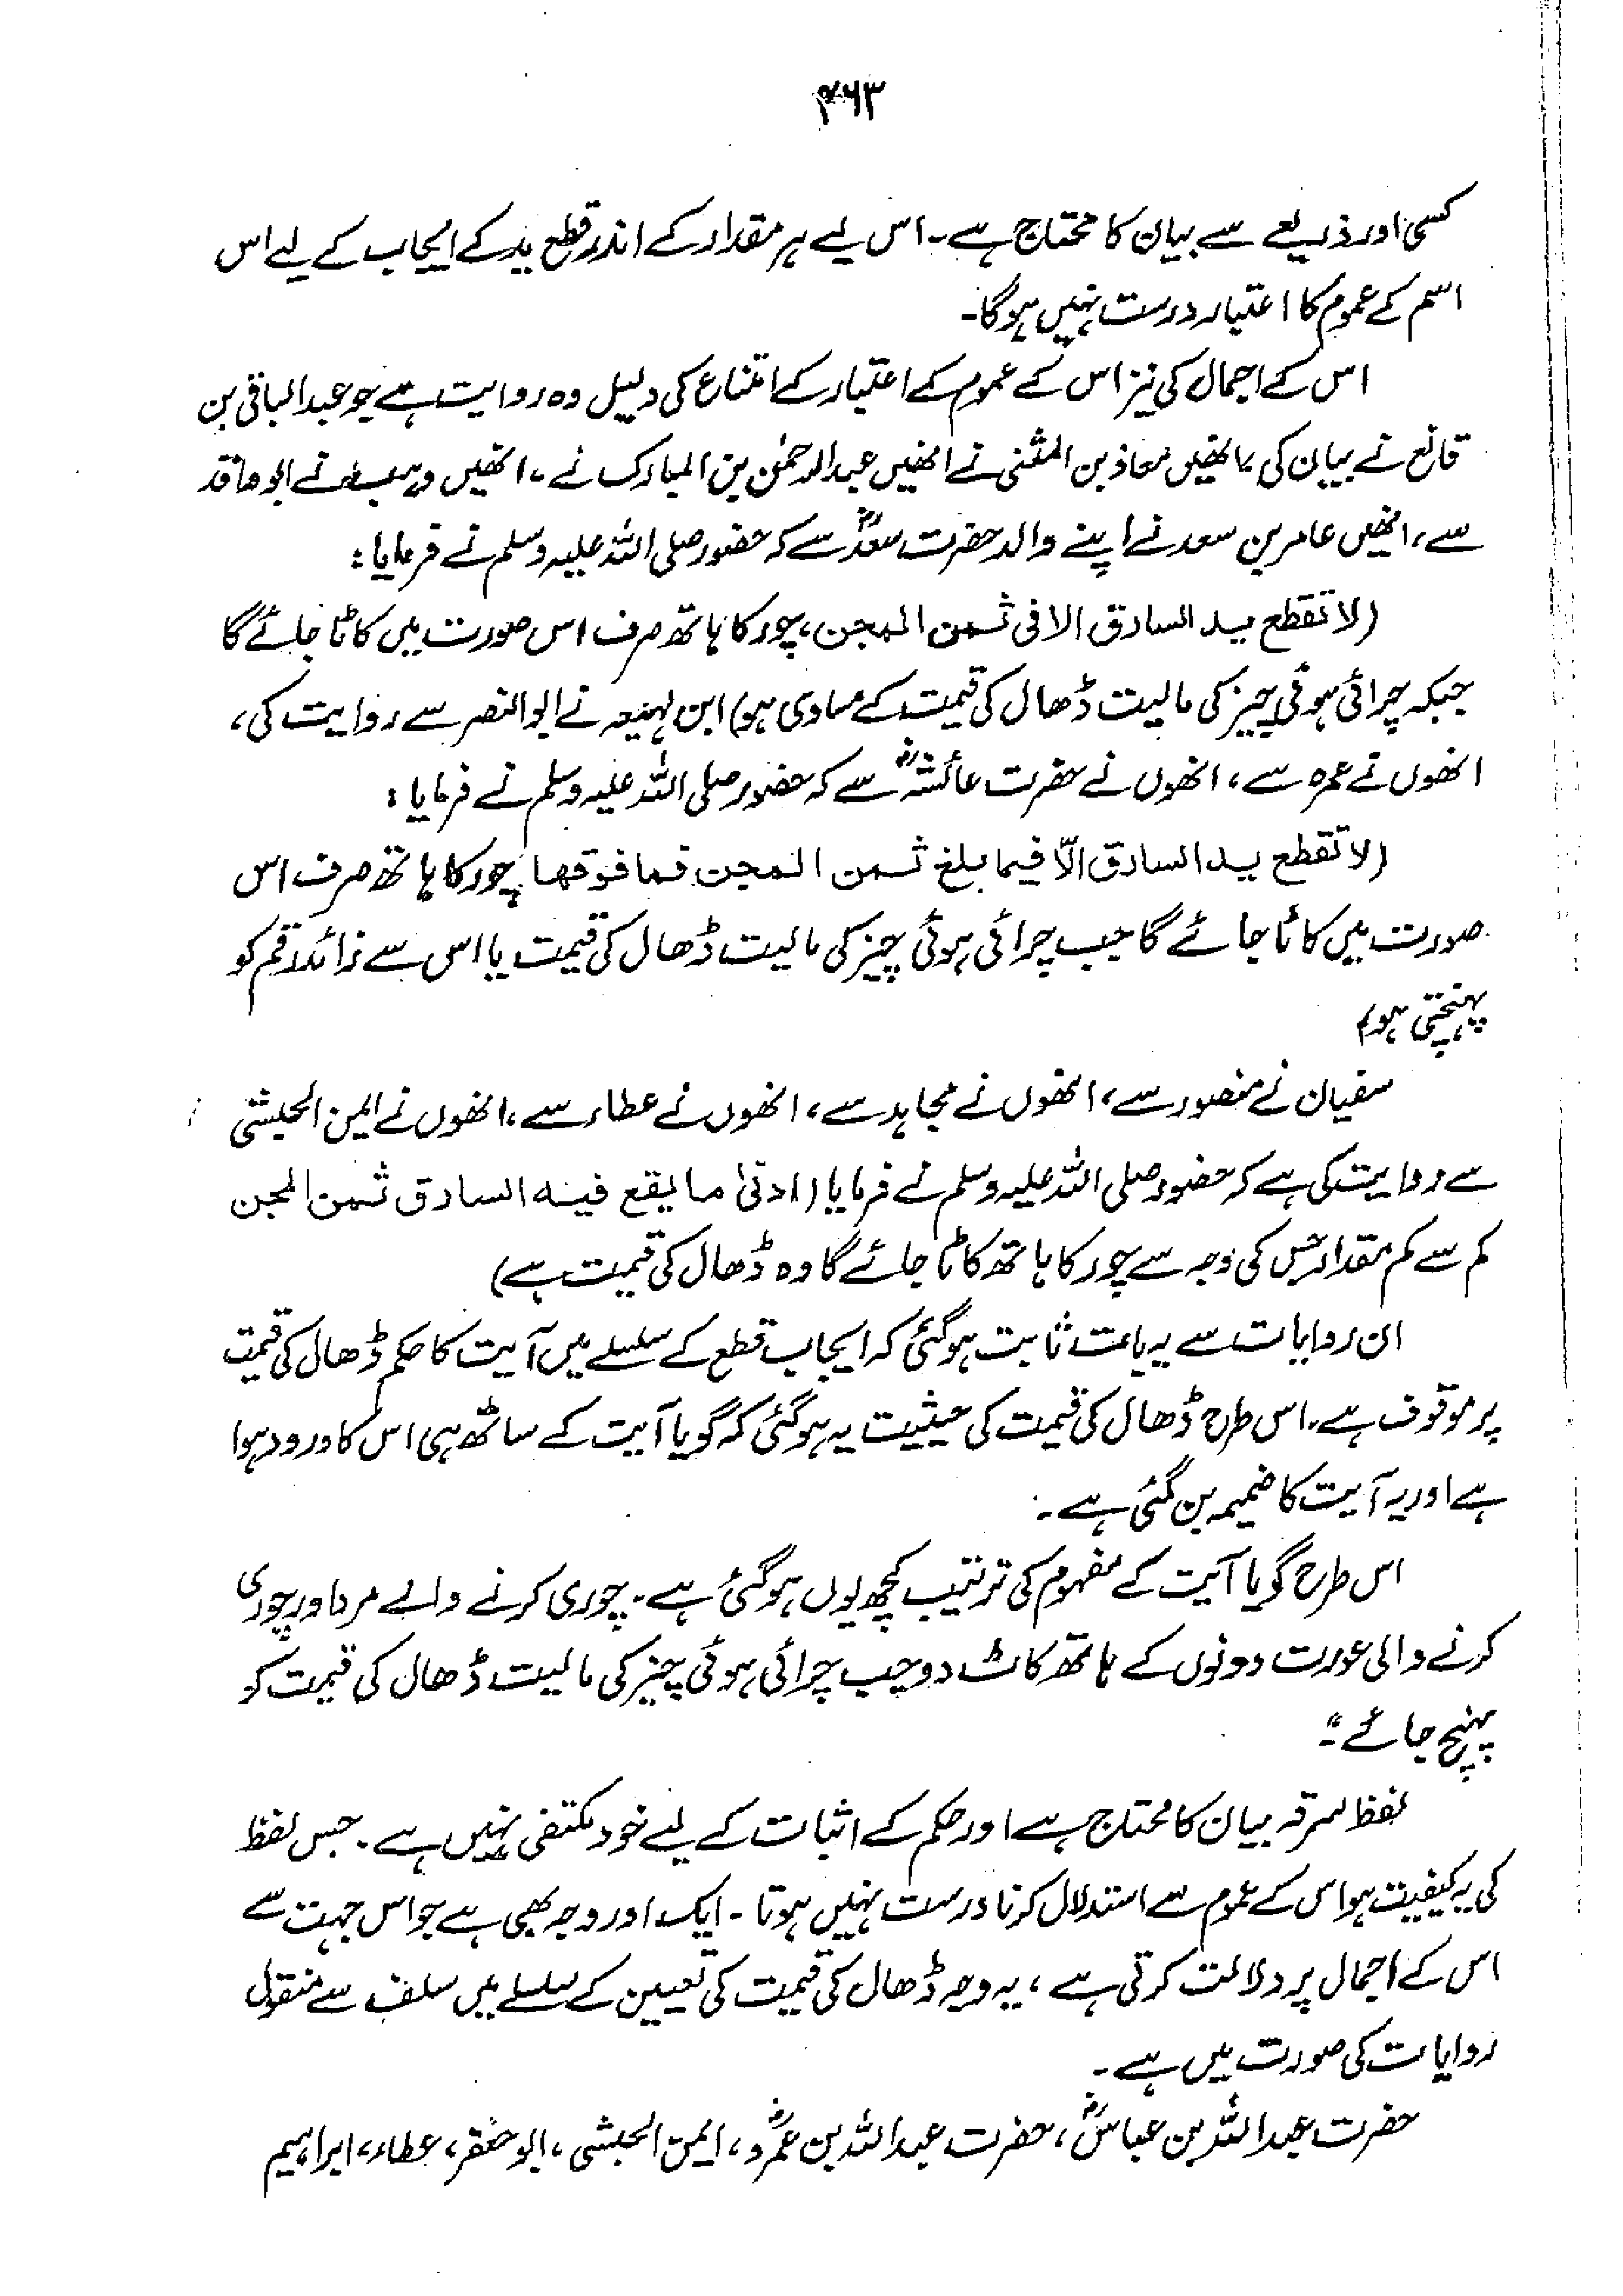 ۴۶۳
کسی اور ذریعے سے بیان کا محتاج ہے۔ اس لیے ہر مقدار کے اندر قطع ید کے ایجاب کے لیے اس
اسم کے عموم کا اعتبار درست نہیں ہوگا۔
اس کے اجمال کی نیز اس کے عموم کے اعتبار کے امتناع کی دلیل وہ روایت ہے جو عبدالباقی بن
قانع نے بیان کی، انھیں معاذ بن المثنی نے انھیں عبدالرحمٰن بن المبارک نے، انھیں وہیب نے ابو واقد
سے، انھیں عامر بن سعد نے اپنے والد حضرت سعدؓ سے کہ حضور صلی اللہ علیہ وسلم نے فرمایا:
(لا تقطع ید السارق الا فی ثمن المجن، چور کا ہاتھ صرف اس صورت میں کاٹا جائے گا
جبکہ چرائی ہوئی چیز کی مالیت ڈھال کی قیمت کے مساوی ہو) ابن لہیعہ نے ابوالنضر سے روایت کی،
انھوں نے عمرہ سے، انھوں نے حضرت عائشہؓ سے کہ حضور صلی اللہ علیہ وسلم نے فرمایا:
(لا تقطع ید السارق الّا فیما بلغ ثمن المجن فما فوقھا چور کا ہاتھ صرف اس
صورت میں کاٹا جائے گا جب چرائی ہوئی چیز کی مالیت ڈھال کی قیمت یا اس سے زائد رقم کو
پہنچتی ہو)
سفیان نے منصور سے، انھوں نے مجاہد سے، انھوں نے عطاء سے، انھوں نے ایمن الحبشی
سے روایت کی ہے کہ حضور صلی اللہ علیہ وسلم نے فرمایا (ادنیٰ ما یقع فیه السارق ثمن المجن
کم سے کم مقدار جس کی وجہ سے چور کا ہاتھ کاٹا جائے گا وہ ڈھال کی قیمت ہے)
ان روایات سے یہ بات ثابت ہوگئی کہ ایجاب قطع کے سلسلے میں آیت کا حکم ڈھال کی قیمت
پر موقوف ہے۔ اس طرح ڈھال کی قیمت کی حیثیت یہ ہوگئی کہ گویا آیت کے ساتھ ہی اس کا ورود ہوا
ہے اور یہ آیت کا ضمیمہ بن گئی ہے۔
اس طرح گویا آیت کے مفہوم کی ترتیب کچھ یوں ہوگئی ہے۔ چوری کرنے والے مرد اور چوری
کرنے والی عورت دونوں کے ہاتھ کاٹ دو جب چرائی ہوئی چیز کی مالیت ڈھال کی قیمت کو
پہنچ جائے"۔
لفظ سرقہ بیان کا محتاج ہے اور حکم کے اثبات کے لیے خود مکتفی نہیں ہے۔ جس لفظ
کی یہ کیفیت ہو اس کے عموم سے استدلال کرنا درست نہیں ہوتا۔ ایک اور وجہ بھی ہے جو اس جہت سے
اس کے اجمال پر دلالت کرتی ہے، یہ وجہ ڈھال کی قیمت کی تعیین کے سلسلے میں سلف سے منقول
روایات کی صورت میں ہے۔
حضرت عبداللہ بن عباسؓ، حضرت عبداللہ بن عمرؓو، ایمن الحبشی، ابوجعفر، عطاء، ابراہیم